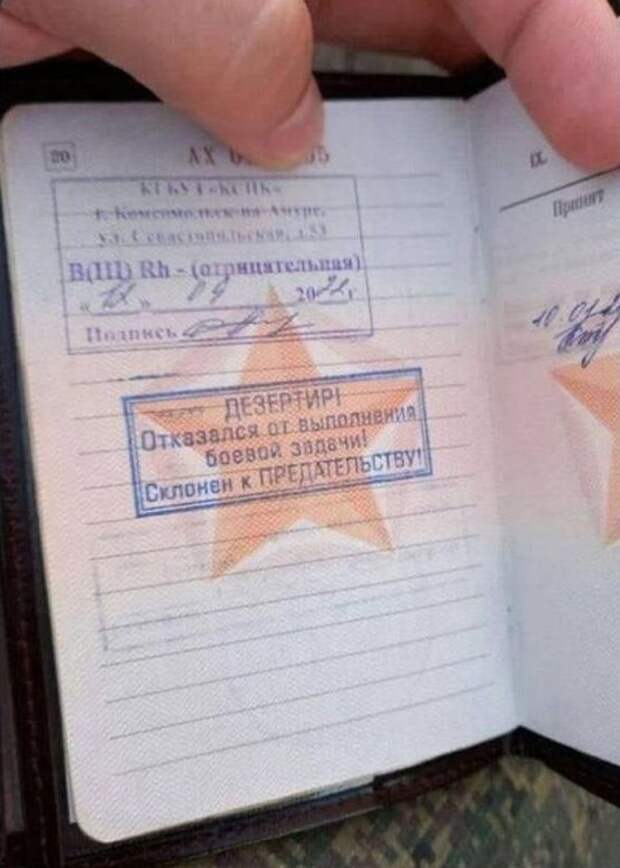 20
АХ
г. Комсомольск-на-Амуре,
ул. Севастопольская, д.53
В(III) Rh - (отрицательная)
20 г
Подпись
ДЕЗЕРТИР!
Отказался от выполнения
боевой задачи!
Склонен к ПРЕДАТЕЛЬСТВУ!
IX.
Принят